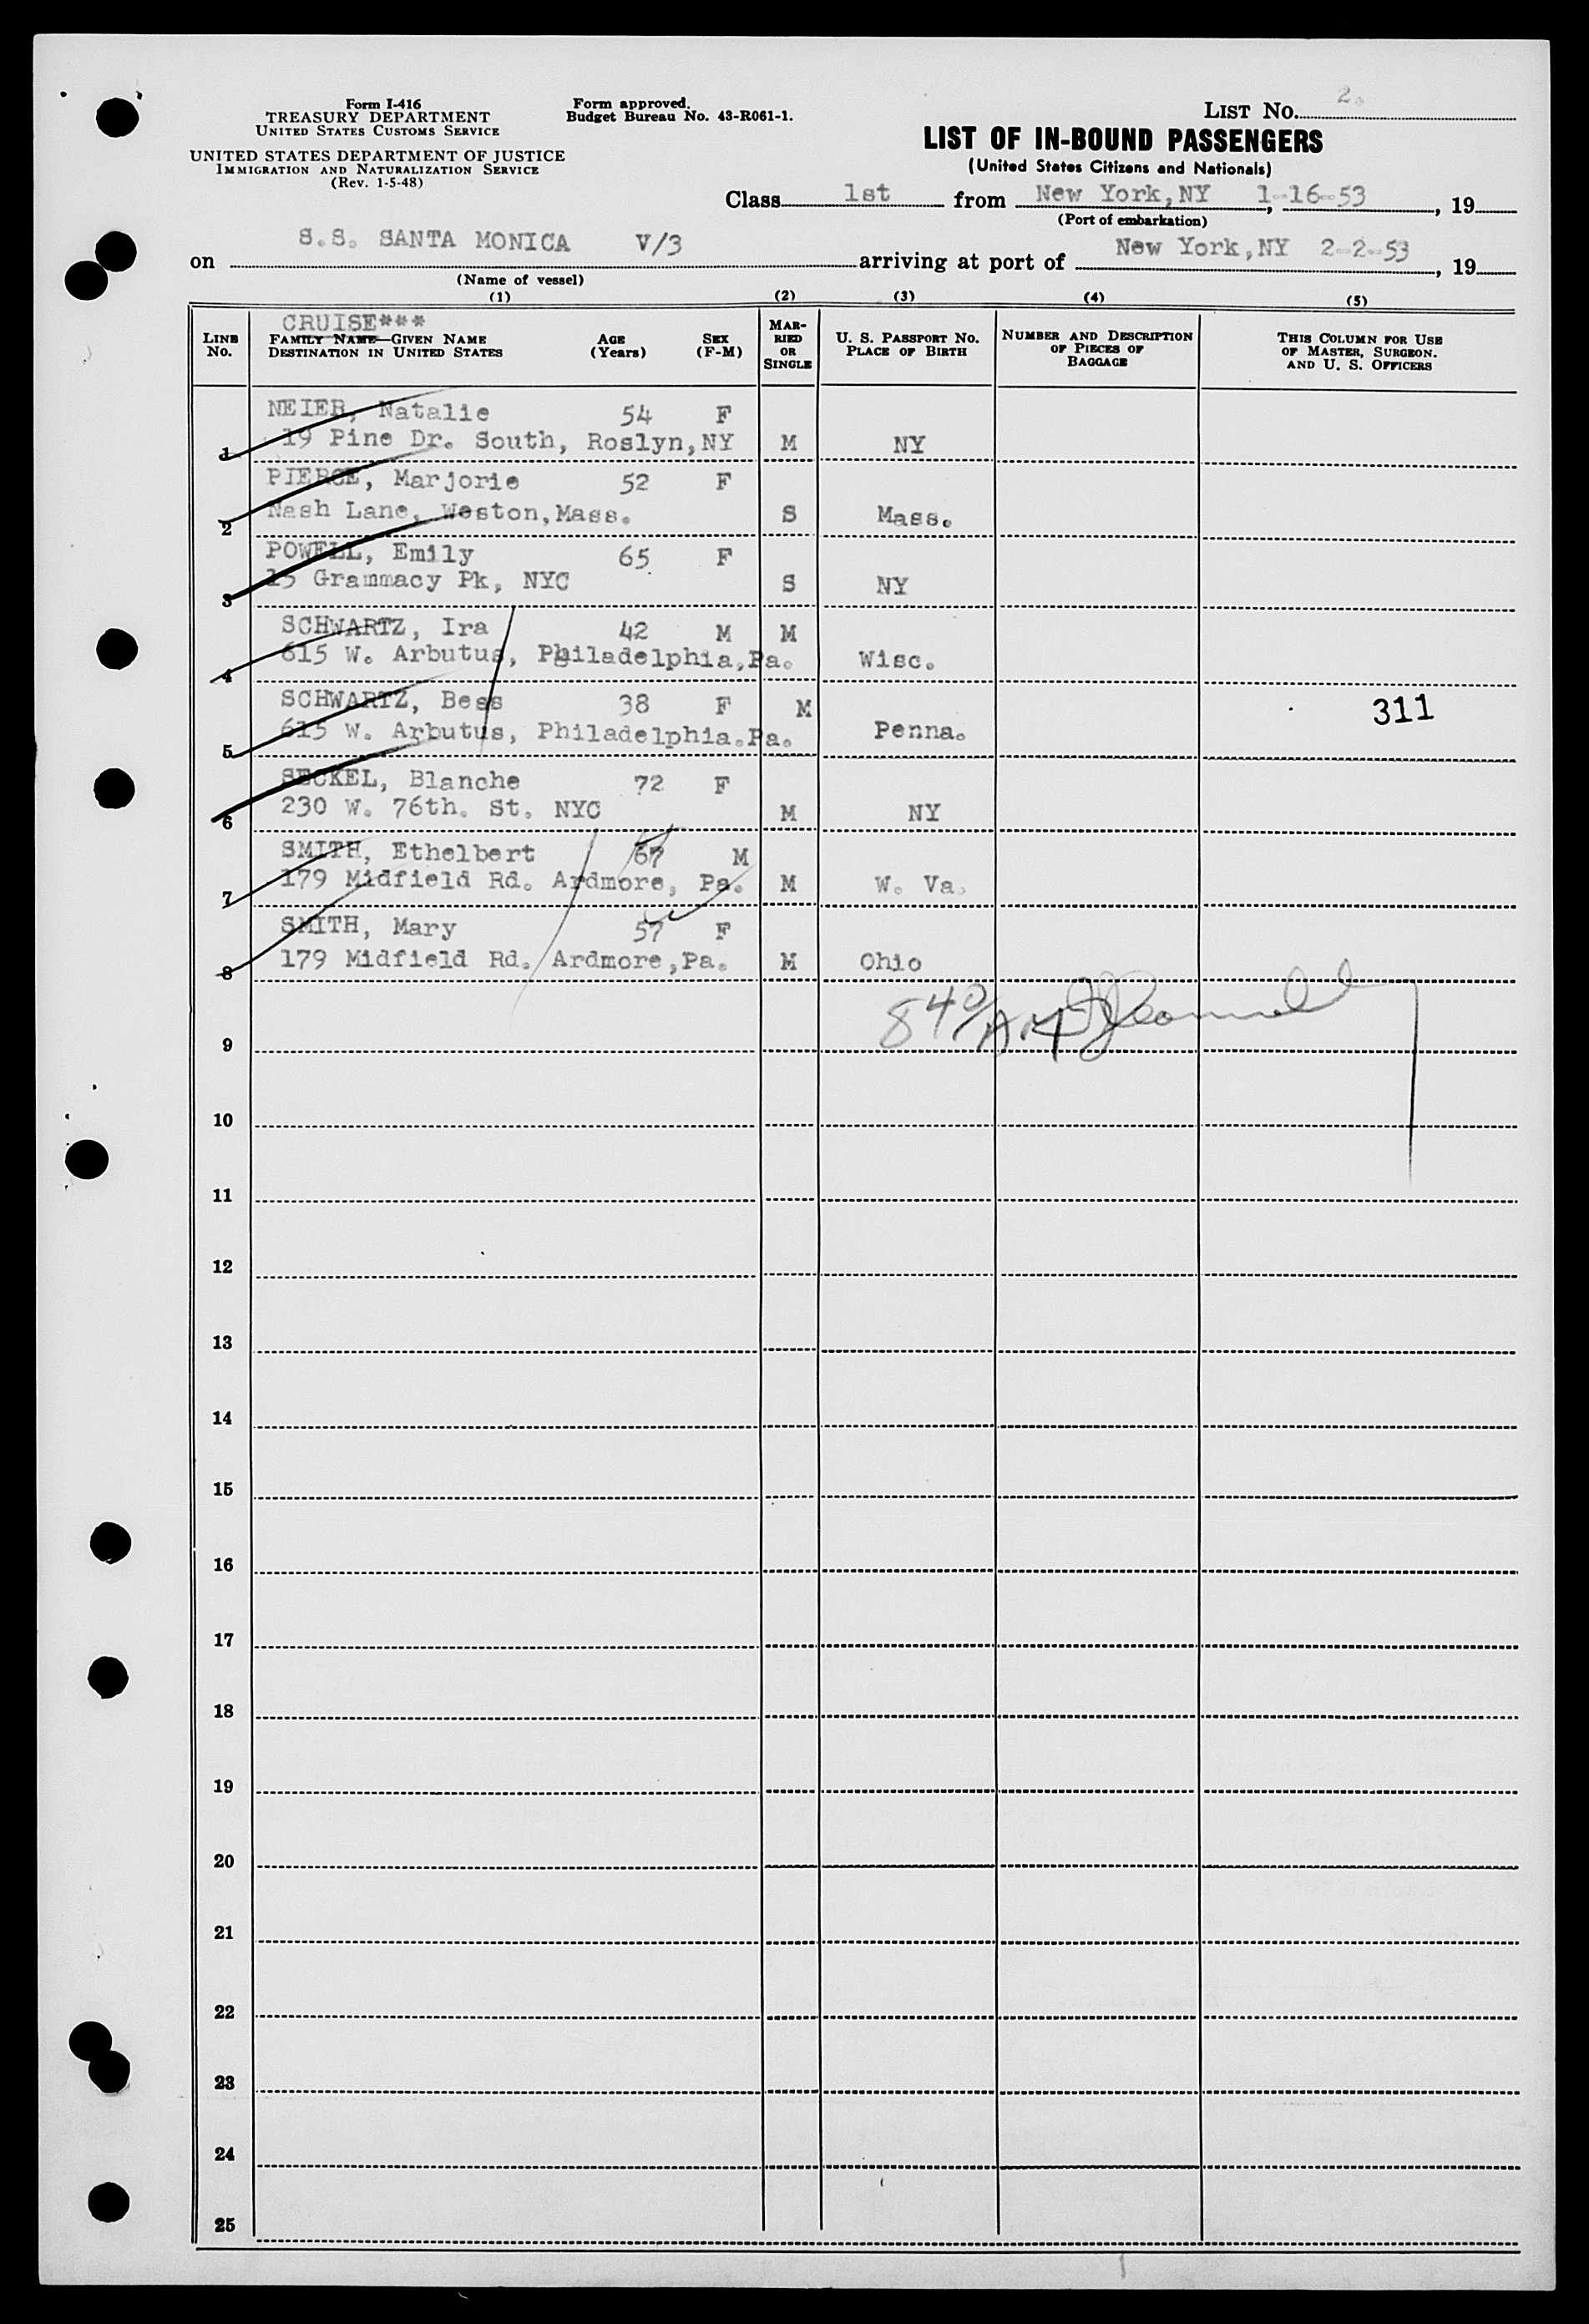 Form I-416
TREASURY DEPARTMENT
UNITED STATES CUSTOMS SERVICE
UNITED STATES DEPARTMENT OF JUSTICE
IMMIGRATION AND NATURALIZATION SERVICE
(Rev. 1-5-48)
Form approved.
Budget Bureau No. 43-R061-1.
LIST No. 2.
LIST OF IN-BOUND PASSENGERS
(United States Citizens and Nationals)
Class 1st from New York,NY 1-16-53, 19
(Port of embarkation)
on S.S. SANTA MONICA V/3 arriving at port of New York,NY 2-2-53, 19
(Name of vessel)
(1) (2) (3) (4) (5)
CRUISE***
LINE No. FAMILY NAME—GIVEN NAME DESTINATION IN UNITED STATES AGE (Years) SEX (F-M) MARRIED OR SINGLE U. S. PASSPORT No. PLACE OF BIRTH NUMBER AND DESCRIPTION OF PIECES OF BAGGAGE THIS COLUMN FOR USE OF MASTER, SURGEON. AND U. S. OFFICERS
NEIER, Natalie 54 F
1 19 Pine Dr. South, Roslyn,NY M NY
PIERCE, Marjorie 52 F
2 Nash Lane, Weston,Mass. S Mass.
POWELL, Emily 65 F
3 15 Grammacy Pk, NYC S NY
SCHWARTZ, Ira 42 M M
4 615 W. Arbutus, Philadelphia,Pa. Wisc.
SCHWARTZ, Bess 38 F M 311
5 615 W. Arbutus, Philadelphia.Pa. Penna.
SECKEL, Blanche 72 F
6 230 W. 76th. St. NYC M NY
SMITH, Ethelbert 67 M
7 179 Midfield Rd. Ardmore, Pa. M W. Va.
SMITH, Mary 57 F
8 179 Midfield Rd. Ardmore,Pa. M Ohio
840/AM
9
10
11
12
13
14
15
16
17
18
19
20
21
22
23
24
25